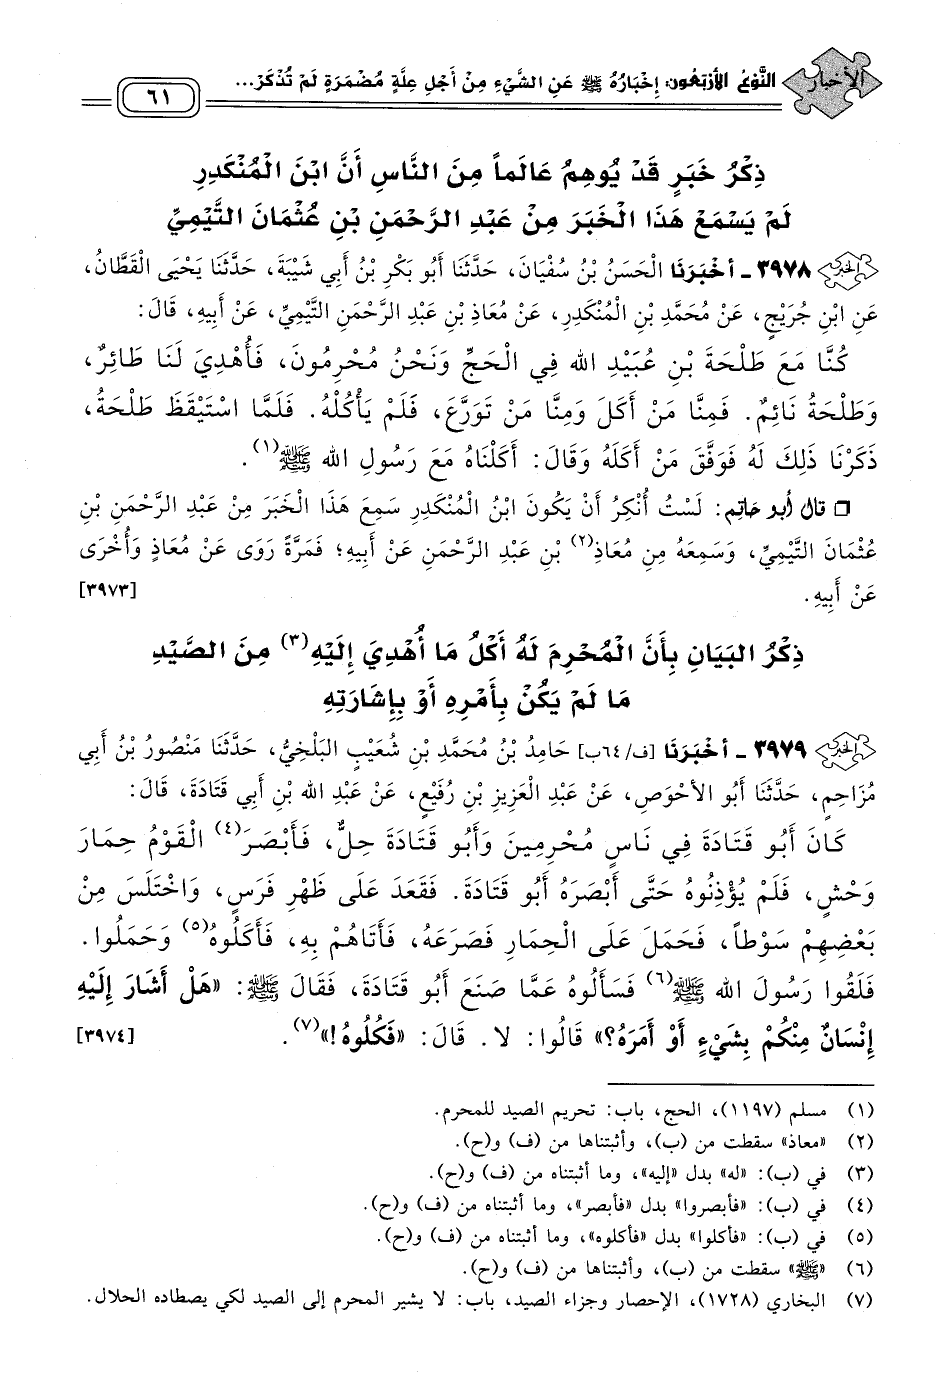 الأخبار النَّوْعُ الأَرْبَعُونَ: إِخْبَارُهُ ﷺ عَنِ الشَّيْءِ مِنْ أَجْلِ عِلَّةٍ مُضْمَرَةٍ لَمْ تُذْكَرْ... ٦١
ذِكْرُ خَبَرٍ قَدْ يُوهِمُ عَالَماً مِنَ النَّاسِ أَنَّ ابْنَ الْمُنْكَدِرِ
لَمْ يَسْمَعْ هَذَا الْخَبَرَ مِنْ عَبْدِ الرَّحْمَنِ بْنِ عُثْمَانَ التَّيْمِيِّ
٣٩٧٨ - أَخْبَرَنَا الْحَسَنُ بْنُ سُفْيَانَ، حَدَّثَنَا أَبُو بَكْرِ بْنُ أَبِي شَيْبَةَ، حَدَّثَنَا يَحْيَى الْقَطَّانُ،
عَنِ ابْنِ جُرَيْجٍ، عَنْ مُحَمَّدِ بْنِ الْمُنْكَدِرِ، عَنْ مُعَاذِ بْنِ عَبْدِ الرَّحْمَنِ التَّيْمِيِّ، عَنْ أَبِيهِ، قَالَ:
كُنَّا مَعَ طَلْحَةَ بْنِ عُبَيْدِ الله فِي الْحَجِّ وَنَحْنُ مُحْرِمُونَ، فَأُهْدِيَ لَنَا طَائِرٌ،
وَطَلْحَةُ نَائِمٌ. فَمِنَّا مَنْ أَكَلَ وَمِنَّا مَنْ تَوَرَّعَ، فَلَمْ يَأْكُلْهُ. فَلَمَّا اسْتَيْقَظَ طَلْحَةُ،
ذَكَرْنَا ذَلِكَ لَهُ فَوَفَّقَ مَنْ أَكَلَهُ وَقَالَ: أَكَلْنَاهُ مَعَ رَسُولِ الله ﷺ(١).
□ قال أبو حاتم: لَسْتُ أُنْكِرُ أَنْ يَكُونَ ابْنُ الْمُنْكَدِرِ سَمِعَ هَذَا الْخَبَرَ مِنْ عَبْدِ الرَّحْمَنِ بْنِ
عُثْمَانَ التَّيْمِيِّ، وَسَمِعَهُ مِنْ مُعَاذِ(٢) بْنِ عَبْدِ الرَّحْمَنِ عَنْ أَبِيهِ؛ فَمَرَّةً رَوَى عَنْ مُعَاذٍ وَأُخْرَى
عَنْ أَبِيهِ. [٣٩٧٣]
ذِكْرُ البَيَانِ بِأَنَّ الْمُحْرِمَ لَهُ أَكْلُ مَا أُهْدِيَ إِلَيْهِ(٣) مِنَ الصَّيْدِ
مَا لَمْ يَكُنْ بِأَمْرِهِ أَوْ بِإِشَارَتِهِ
٣٩٧٩ - أَخْبَرَنَا [ف/٦٤ب] حَامِدُ بْنُ مُحَمَّدِ بْنِ شُعَيْبٍ البَلْخِيُّ، حَدَّثَنَا مَنْصُورُ بْنُ أَبِي
مُزَاحِمٍ، حَدَّثَنَا أَبُو الأَحْوَصِ، عَنْ عَبْدِ العَزِيزِ بْنِ رُفَيْعٍ، عَنْ عَبْدِ الله بْنِ أَبِي قَتَادَةَ، قَالَ:
كَانَ أَبُو قَتَادَةَ فِي نَاسٍ مُحْرِمِينَ وَأَبُو قَتَادَةَ حِلٌّ، فَأَبْصَرَ(٤) الْقَوْمُ حِمَارَ
وَحْشٍ، فَلَمْ يُؤْذِنُوهُ حَتَّى أَبْصَرَهُ أَبُو قَتَادَةَ. فَقَعَدَ عَلَى ظَهْرِ فَرَسٍ، وَاخْتَلَسَ مِنْ
بَعْضِهِمْ سَوْطاً، فَحَمَلَ عَلَى الْحِمَارِ فَصَرَعَهُ، فَأَتَاهُمْ بِهِ، فَأَكَلُوهُ(٥) وَحَمَلُوا.
فَلَقُوا رَسُولَ الله ﷺ(٦) فَسَأَلُوهُ عَمَّا صَنَعَ أَبُو قَتَادَةَ، فَقَالَ ﷺ: «هَلْ أَشَارَ إِلَيْهِ
إِنْسَانٌ مِنْكُمْ بِشَيْءٍ أَوْ أَمَرَهُ؟» قَالُوا: لا. قَالَ: «فَكُلُوهُ!»(٧). [٣٩٧٤]
(١) مسلم (١١٩٧)، الحج، باب: تحريم الصيد للمحرم.
(٢) «معاذ» سقطت من (ب)، وأثبتناها من (ف) و(ح).
(٣) في (ب): «له» بدل «إليه»، وما أثبتناه من (ف) و(ح).
(٤) في (ب): «فأبصروا» بدل «فأبصر»، وما أثبتناه من (ف) و(ح).
(٥) في (ب): «فأكلوا» بدل «فأكلوه»، وما أثبتناه من (ف) و(ح).
(٦) «ﷺ» سقطت من (ب)، وأثبتناها من (ف) و(ح).
(٧) البخاري (١٧٢٨)، الإحصار وجزاء الصيد، باب: لا يشير المحرم إلى الصيد لكي يصطاده الحلال.